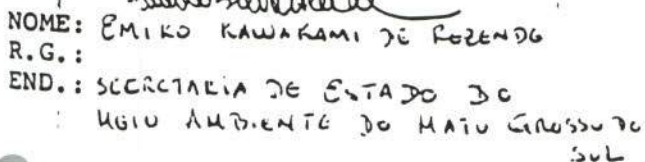 NOME: EMIKO KAWAKAMI DE REZENDE
R.G.:
END.: SECRETARIA DE ESTADO DO
MEIO AMBIENTE DO MATO GROSSO DO
SUL